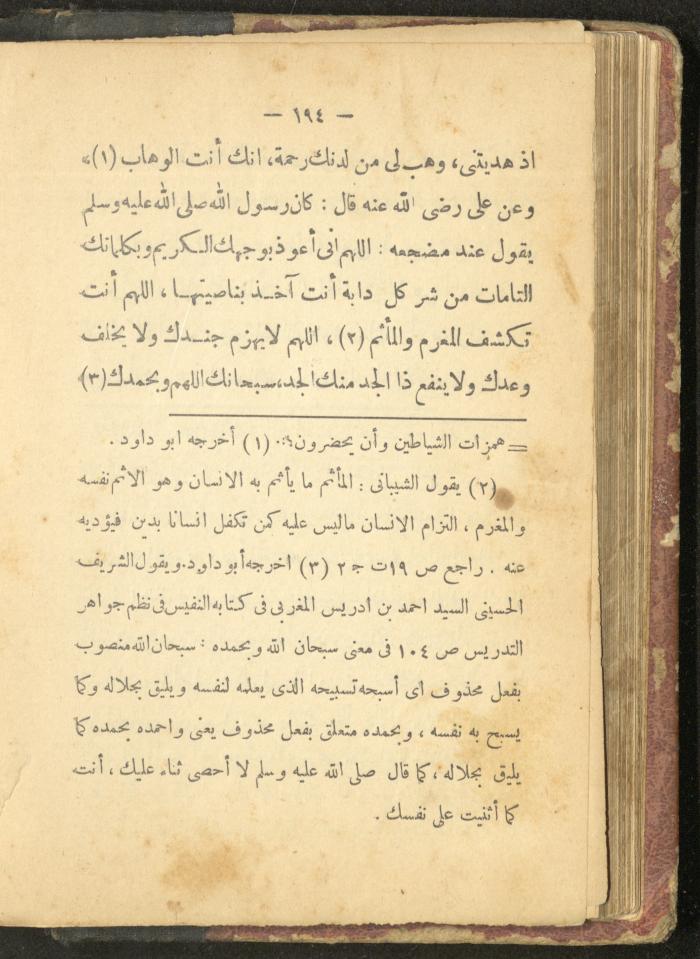 — ١٩٤ —
اذ هديتنى، وهب لى من لدنك رحمة، انك أنت الوهاب (١)»
وعن على رضى الله عنه قال : كان رسول الله صلى الله عليه وسلم
يقول عند مضجعه : اللهم انى أعوذ بوجهك الكريم وبكلماتك
التامات من شر كل دابة أنت آخذ بناصيتها ، اللهم أنت
تكشف المغرم والمأثم (٢) ، اللهم لا يهزم جندك ولا يخلف
وعدك ولا ينفع ذا الجد منك الجد، سبحانك اللهم وبحمدك (٣)
= همزات الشياطين وأن يحضرون». (١) أخرجه ابو داود .
(٢) يقول الشيبانى : المأثم ما يأثم به الانسان وهو الاثم نفسه
والمغرم ، التزام الانسان ماليس عليه كمن تكفل انسانا بدين فيؤديه
عنه . راجع ص ١٩ت ج ٢ (٣) اخرجه أبو داود. ويقول الشريف
الحسينى السيد احمد بن ادريس المغربى فى كتابه النفيس فى نظم جواهر
التدريس ص ١٠٤ فى معنى سبحان الله وبحمده : سبحان الله منصوب
بفعل محذوف اى أسبحه تسبيحه الذى يعلمه لنفسه ويليق بجلاله وكما
يسبح به نفسه ، وبحمده متعلق بفعل محذوف يعنى واحمده بحمده كما
يليق بجلاله ، كما قال صلى الله عليه وسلم لا أحصى ثناء عليك ، أنت
كما أثنيت على نفسك .